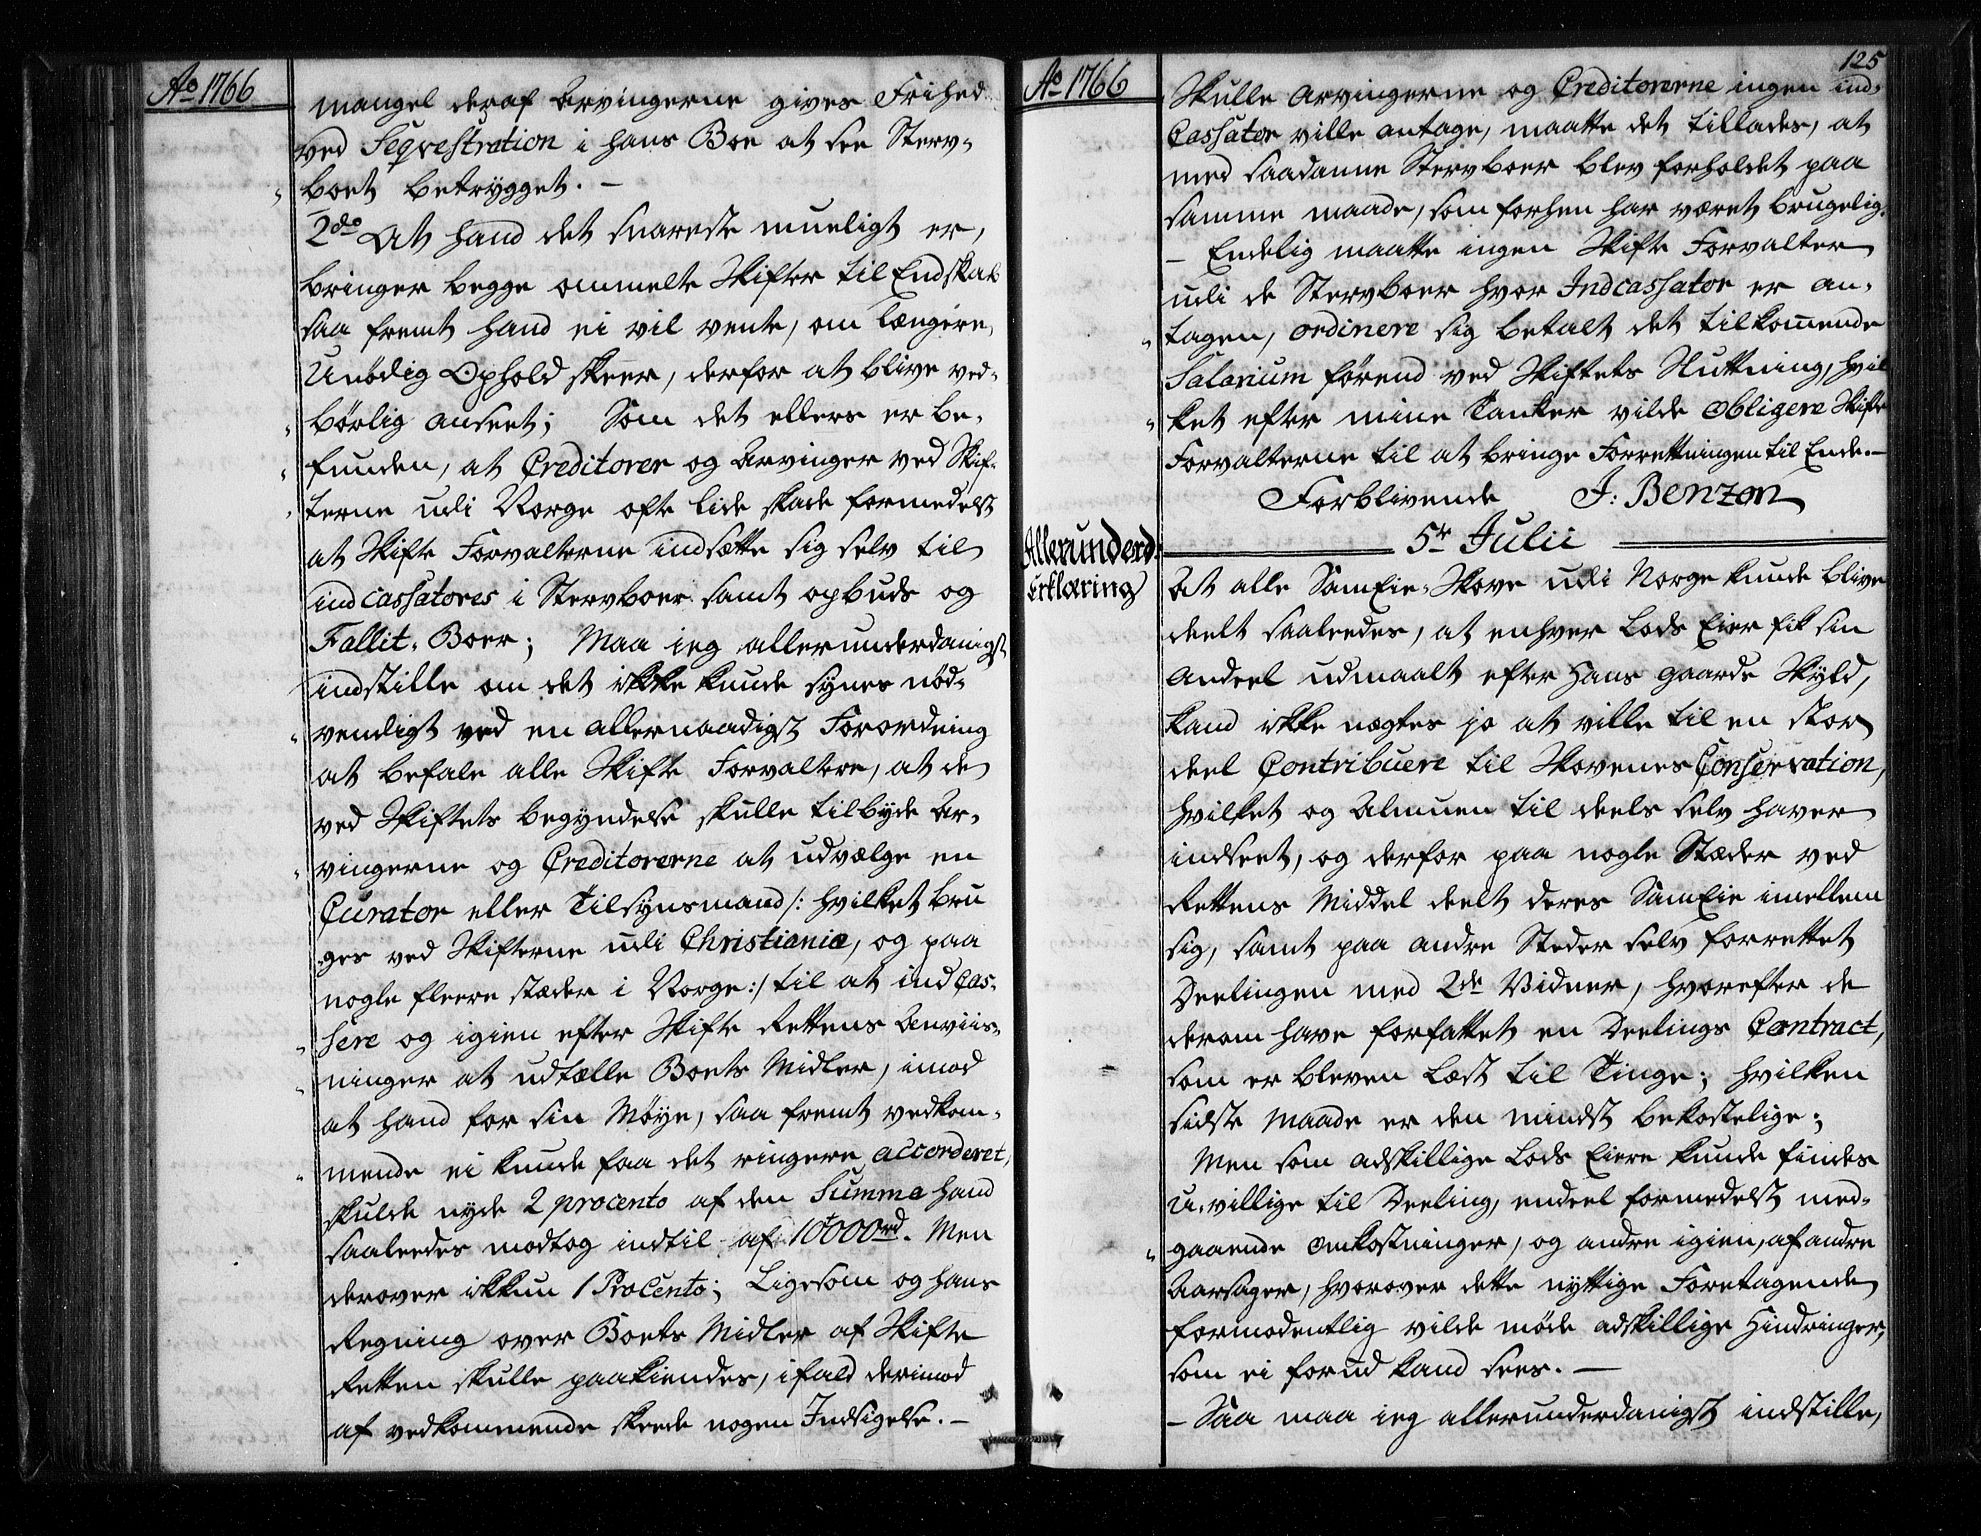 Ao 1766
mangel deraf Arvingerne gives Frihed
ved Seqvestration i hans Boe at see Sterv-
boet betrygget. –
2do At hand det snareste mueligt er,
bringer begge ommelte Skifter til Endskab
saa fremt hand ei vil vente, om længere,
Unødig Ophold skeer, derfor at blive ved-
børlig anseet; Som det ellers er be-
funden, at Creditorer og Arvinger ved Skif-
terne udi Norge ofte lide skade formedelst
at Skifte Forvalterne indsætte sig selv til
indcassatores i Stervboer samt opbuds og
Fallit-Boer; Maa ieg allerunderdanigst
indstille om det ikke kunde synes nød-
vendigt ved en allernaadigst Forordning
at befale alle Skifte Forvaltere, at de
ved Skiftets begyndelse skulle tilbyde Ar-
vingerne og Creditorerne at udvælge en
Curator eller Tilsynsmand /: hvilket bru
ges ved Skifterne udi Christiania, og paa
nogle fleere stæder i Norge :/ til at indCas-
sere og igien efter Skifte Rettens Anviis-
ninger at udtælle Boets Midler, imod
at hand for sin Møye, saa fremt vedkom-
mende ei kunde faa det ringere accorderet,
skulde nyde 2 procento af den Summa hand
saaleedes modtog indtil af 10000rd. Men
derover ikkun 1 ProCento; Ligesom og hans
Regning over Boets Midler af Skifte
Retten skulle paakiendes, ifald derimod
af vedkommende skeede nogen Indsigelse. –
Ao 1766
125
Skulle Arvingerne og Creditorerne ingen ind-
Cassator ville antage, maatte det tillades, at
med saadanne Stervboer blev forholdet paa
samme maade, som forhen har været brugelig.
– Endelig maatte ingen Skifte Forvalter
udi de Stervboer hvor Indcassator er an-
tagen, ordinere sig betalt det tilkom̄ende
Salarium førend ved Skiftets Sluttning, hvil
ket efter mine Tanker vilde obligere Skifte
Forvalterne til at bringe Forrettningen til Ende. –
Forblivende J: Benzon
5te Julii
Allerunderd:
Erklæring
At alle SamEie-Skove udi Norge kunde blive
deelt saaleedes, at enhver Lods Eier fik sin
Andeel udmaalt efter Hans gaards Skyld,
kand ikke nægtes jo at ville til en stor
deel Contribuere til Skovenes Conservation,
hvilket og Almuen til deels selv haver
indseet, og derfor paa nogle Stæder ved
Rettens Middel deelt deres SamEie imellem
sig, samt paa andre Steder selv forrettet
Deelingen med 2de Vidner, hvorefter de
derom have forfattet en Deelings Contract,
som er bleven Læst til Tinge; hvilken
sidste Maade er den mindst bekostelige;
Men som adskillige Lods Eiere kunde findes
U-villige til Deeling, endeel formedelst med-
gaaende Omkostninger, og andre igien, af andre
Aarsager, hvorover dette nyttige Foretagende
formodentlig vilde møde adskillige Hindringer,
som ei forud kand sees. –
– Saa maa ieg allerunderdanigst indstille,